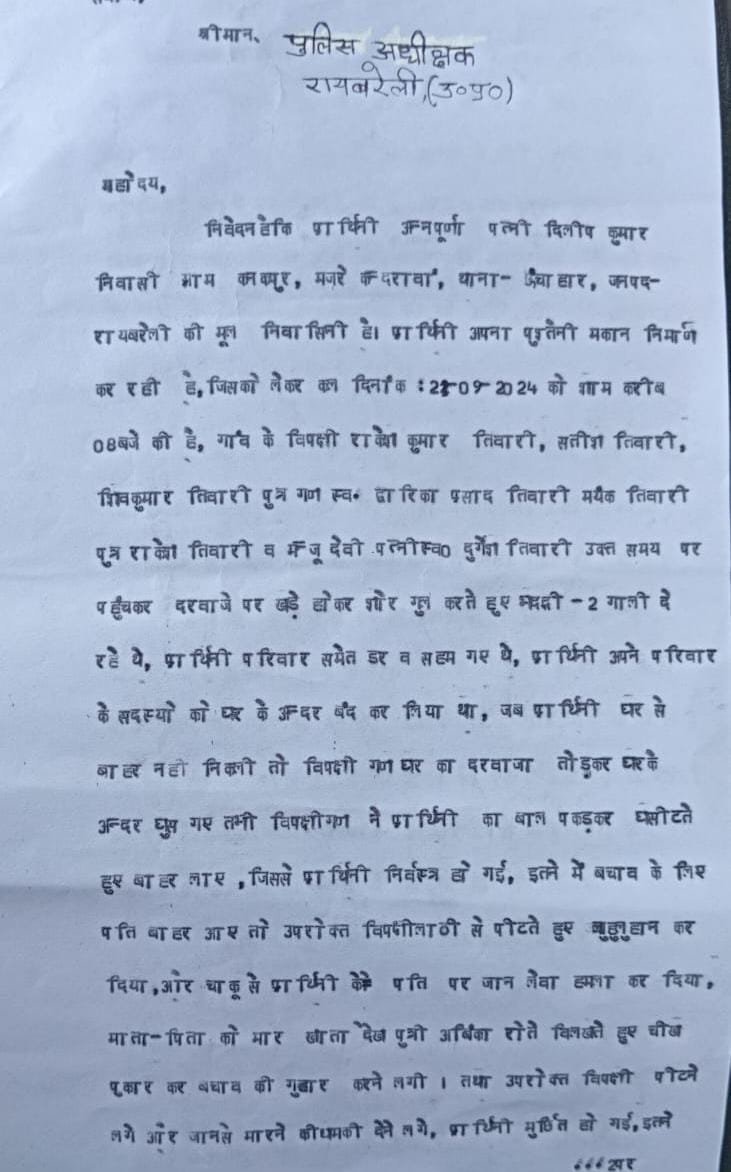 श्रीमान, पुलिस अधीक्षक
रायबरेली,(उ०प्र०)
महोदय,
निवेदन है कि प्रार्थिनी अन्नपूर्णा पत्नी दिलीप कुमार
निवासी ग्राम कनकपुर, मजरे कन्दरावां, थाना- ऊंचाहार, जनपद-
रायबरेली की मूल निवासिनी है। प्रार्थिनी अपना पुश्तैनी मकान निर्माण
कर रही है, जिसको लेकर कल दिनांक : -09-2024 को शाम करीब
08बजे की है, गांव के विपक्षी राकेश कुमार तिवारी, सतीश तिवारी,
शिवकुमार तिवारी पुत्र गण स्व० द्वारिका प्रसाद तिवारी मयंक तिवारी
पुत्र राकेश तिवारी व मन्जू देवी पत्नी स्व० दुर्गेश तिवारी उक्त समय पर
पहुंचकर दरवाजे पर खड़े होकर शोर गुल करते हुए भद्दी -2 गाली दे
रहे थे, प्रार्थिनी परिवार समेत डर व सहम गए थे, प्रार्थिनी अपने परिवार
के सदस्यो को घर के अन्दर बंद कर लिया था, जब प्रार्थिनी घर से
बाहर नही निकली तो विपक्षी गण घर का दरवाजा तोड़कर घर के
अन्दर घुस गए तभी विपक्षीगण ने प्रार्थिनी का बाल पकड़कर घसीटते
हुए बाहर लाए ,जिससे प्रार्थिनी निर्वस्त्र हो गई, इतने में बचाव के लिए
पति बाहर आए तो उपरोक्त विपक्षी लाठी से पीटते हुए लुहुलुहान कर
दिया,और चाकू से प्रार्थिनी के पति पर जान लेवा हमला कर दिया,
माता-पिता को मार खाता देख पुत्री अर्बिका रोते विलखते हुए चीख
पुकार कर बचाव की गुहार करने लगी । तथा उपरोक्त विपक्षी पीटने
लगे और जानसे मारने की धमकी देने लगे, प्रार्थिनी मुर्छित हो गई, इतने